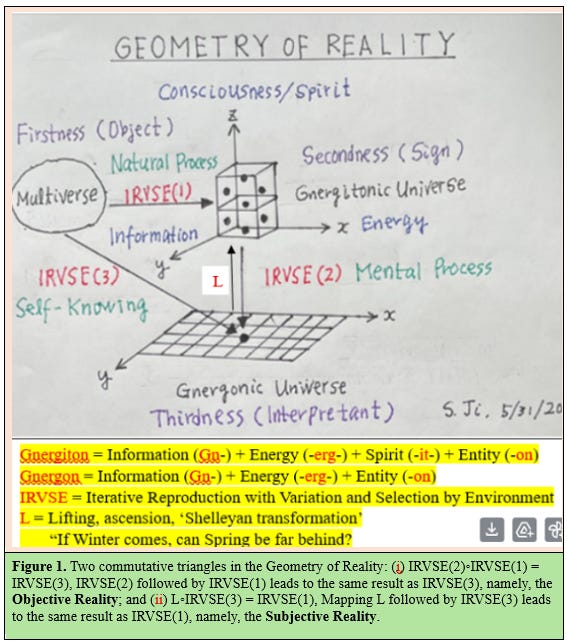 GEOMETRY OF REALITY
Consciousness/Spirit
z
Firstness (Object)
Natural Process
Secondness (Sign)
Multiverse
IRVSE(1)
Gnergitonic Universe
x Energy
Information
y
IRVSE(3)
L
IRVSE(2) Mental Process
Self-Knowing
x
y
Gnergonic Universe
Thirdness (Interpretant)
S. Ji, 5/31/20
Gnergiton = Information (Gn-) + Energy (-erg-) + Spirit (-it-) + Entity (-on)
Gnergon = Information (Gn-) + Energy (-erg-) + Entity (-on)
IRVSE = Iterative Reproduction with Variation and Selection by Environment
L = Lifting, ascension, ‘Shelleyan transformation’
“If Winter comes, can Spring be far behind?
Figure 1. Two commutative triangles in the Geometry of Reality: (i) IRVSE(2)◦IRVSE(1) =
IRVSE(3), IRVSE(2) followed by IRVSE(1) leads to the same result as IRVSE(3), namely, the
Objective Reality; and (ii) L◦IRVSE(3) = IRVSE(1), Mapping L followed by IRVSE(3) leads
to the same result as IRVSE(1), namely, the Subjective Reality.